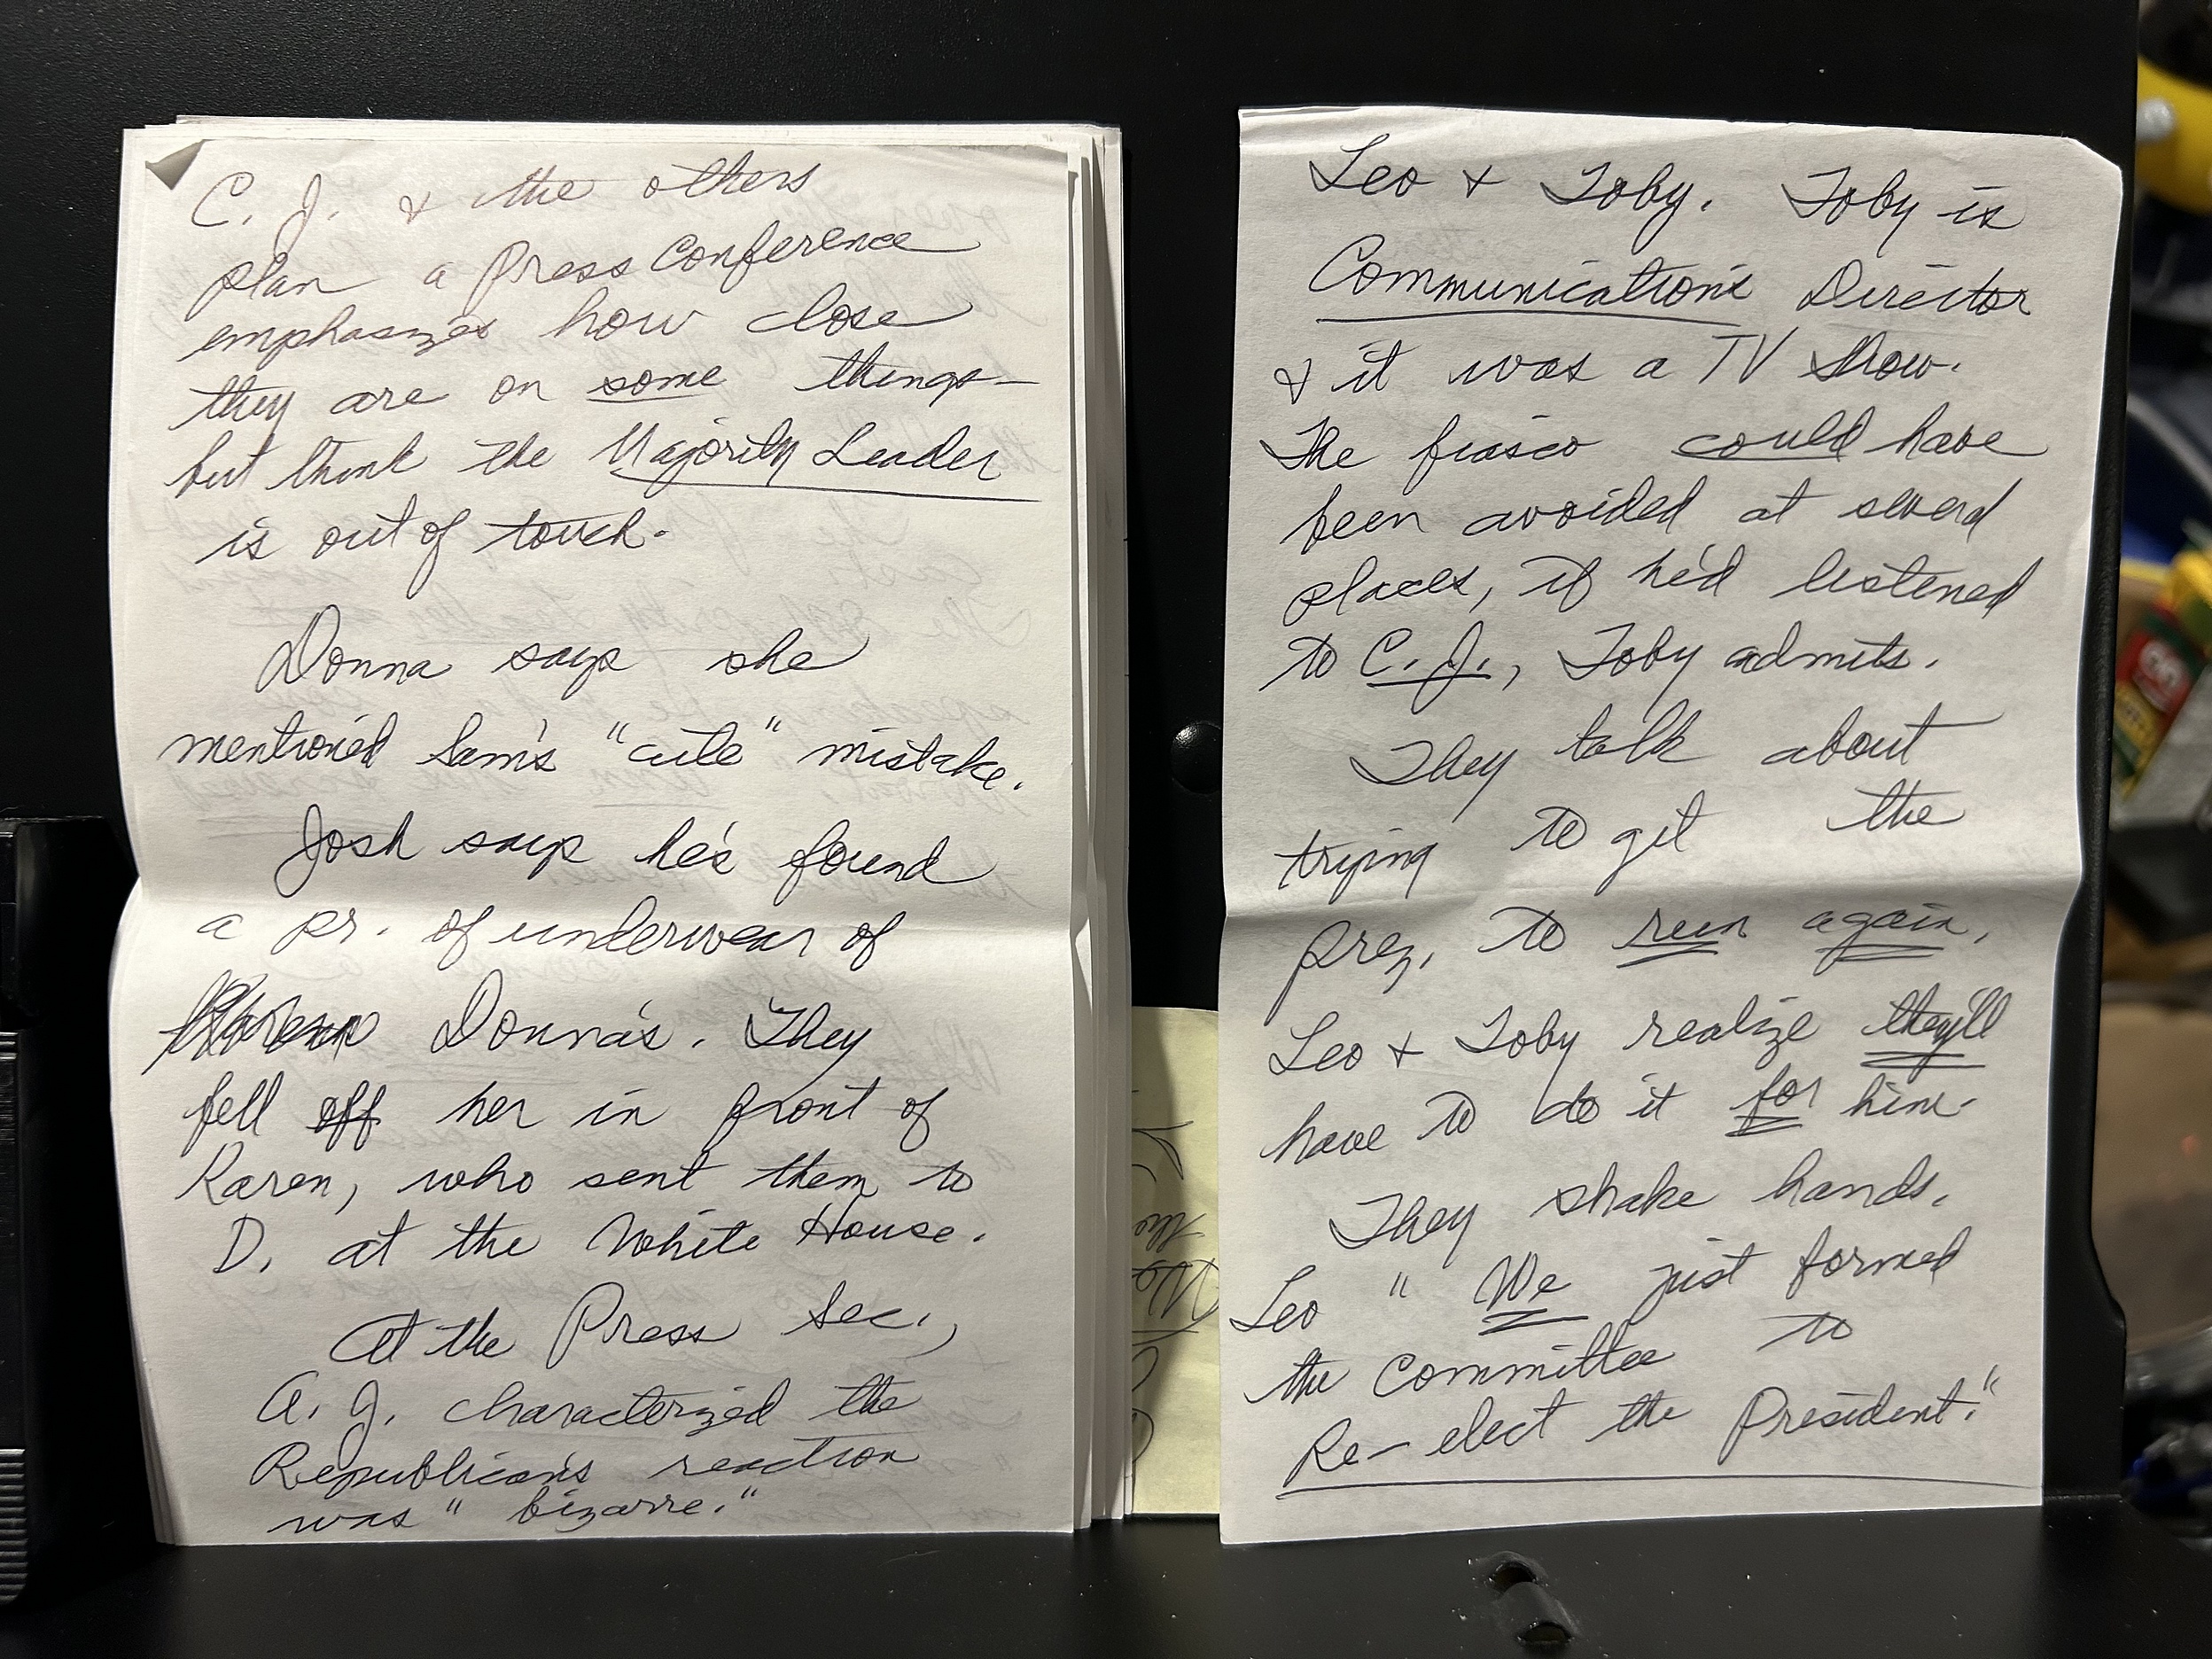 C. J. & the others
plan a Press Conference
emphaszes how close
they are on some things—
but think the Majority Leader
is out of touch.
Donna says she
mentioned Sam's "cute" mistake.
Josh says he's found
a pr. of underwear of
Donna's. They
fell off her in front of
Karen, who sent them to
D. at the White House.
At the Press Sec.,
A. J. characterized the
Republican's reaction
was "bizarre."
Leo & Toby. Toby is
Communications Director
& it was a TV show.
The fiasco could have
been avoided at several
places, if he'd listened
to C. J., Toby admits.
They talk about
trying to get the
prez, to run again.
Leo & Toby realize they'll
have to do it for him.
They shake hands.
Leo "We just formed
the Committee to
Re-elect the President."